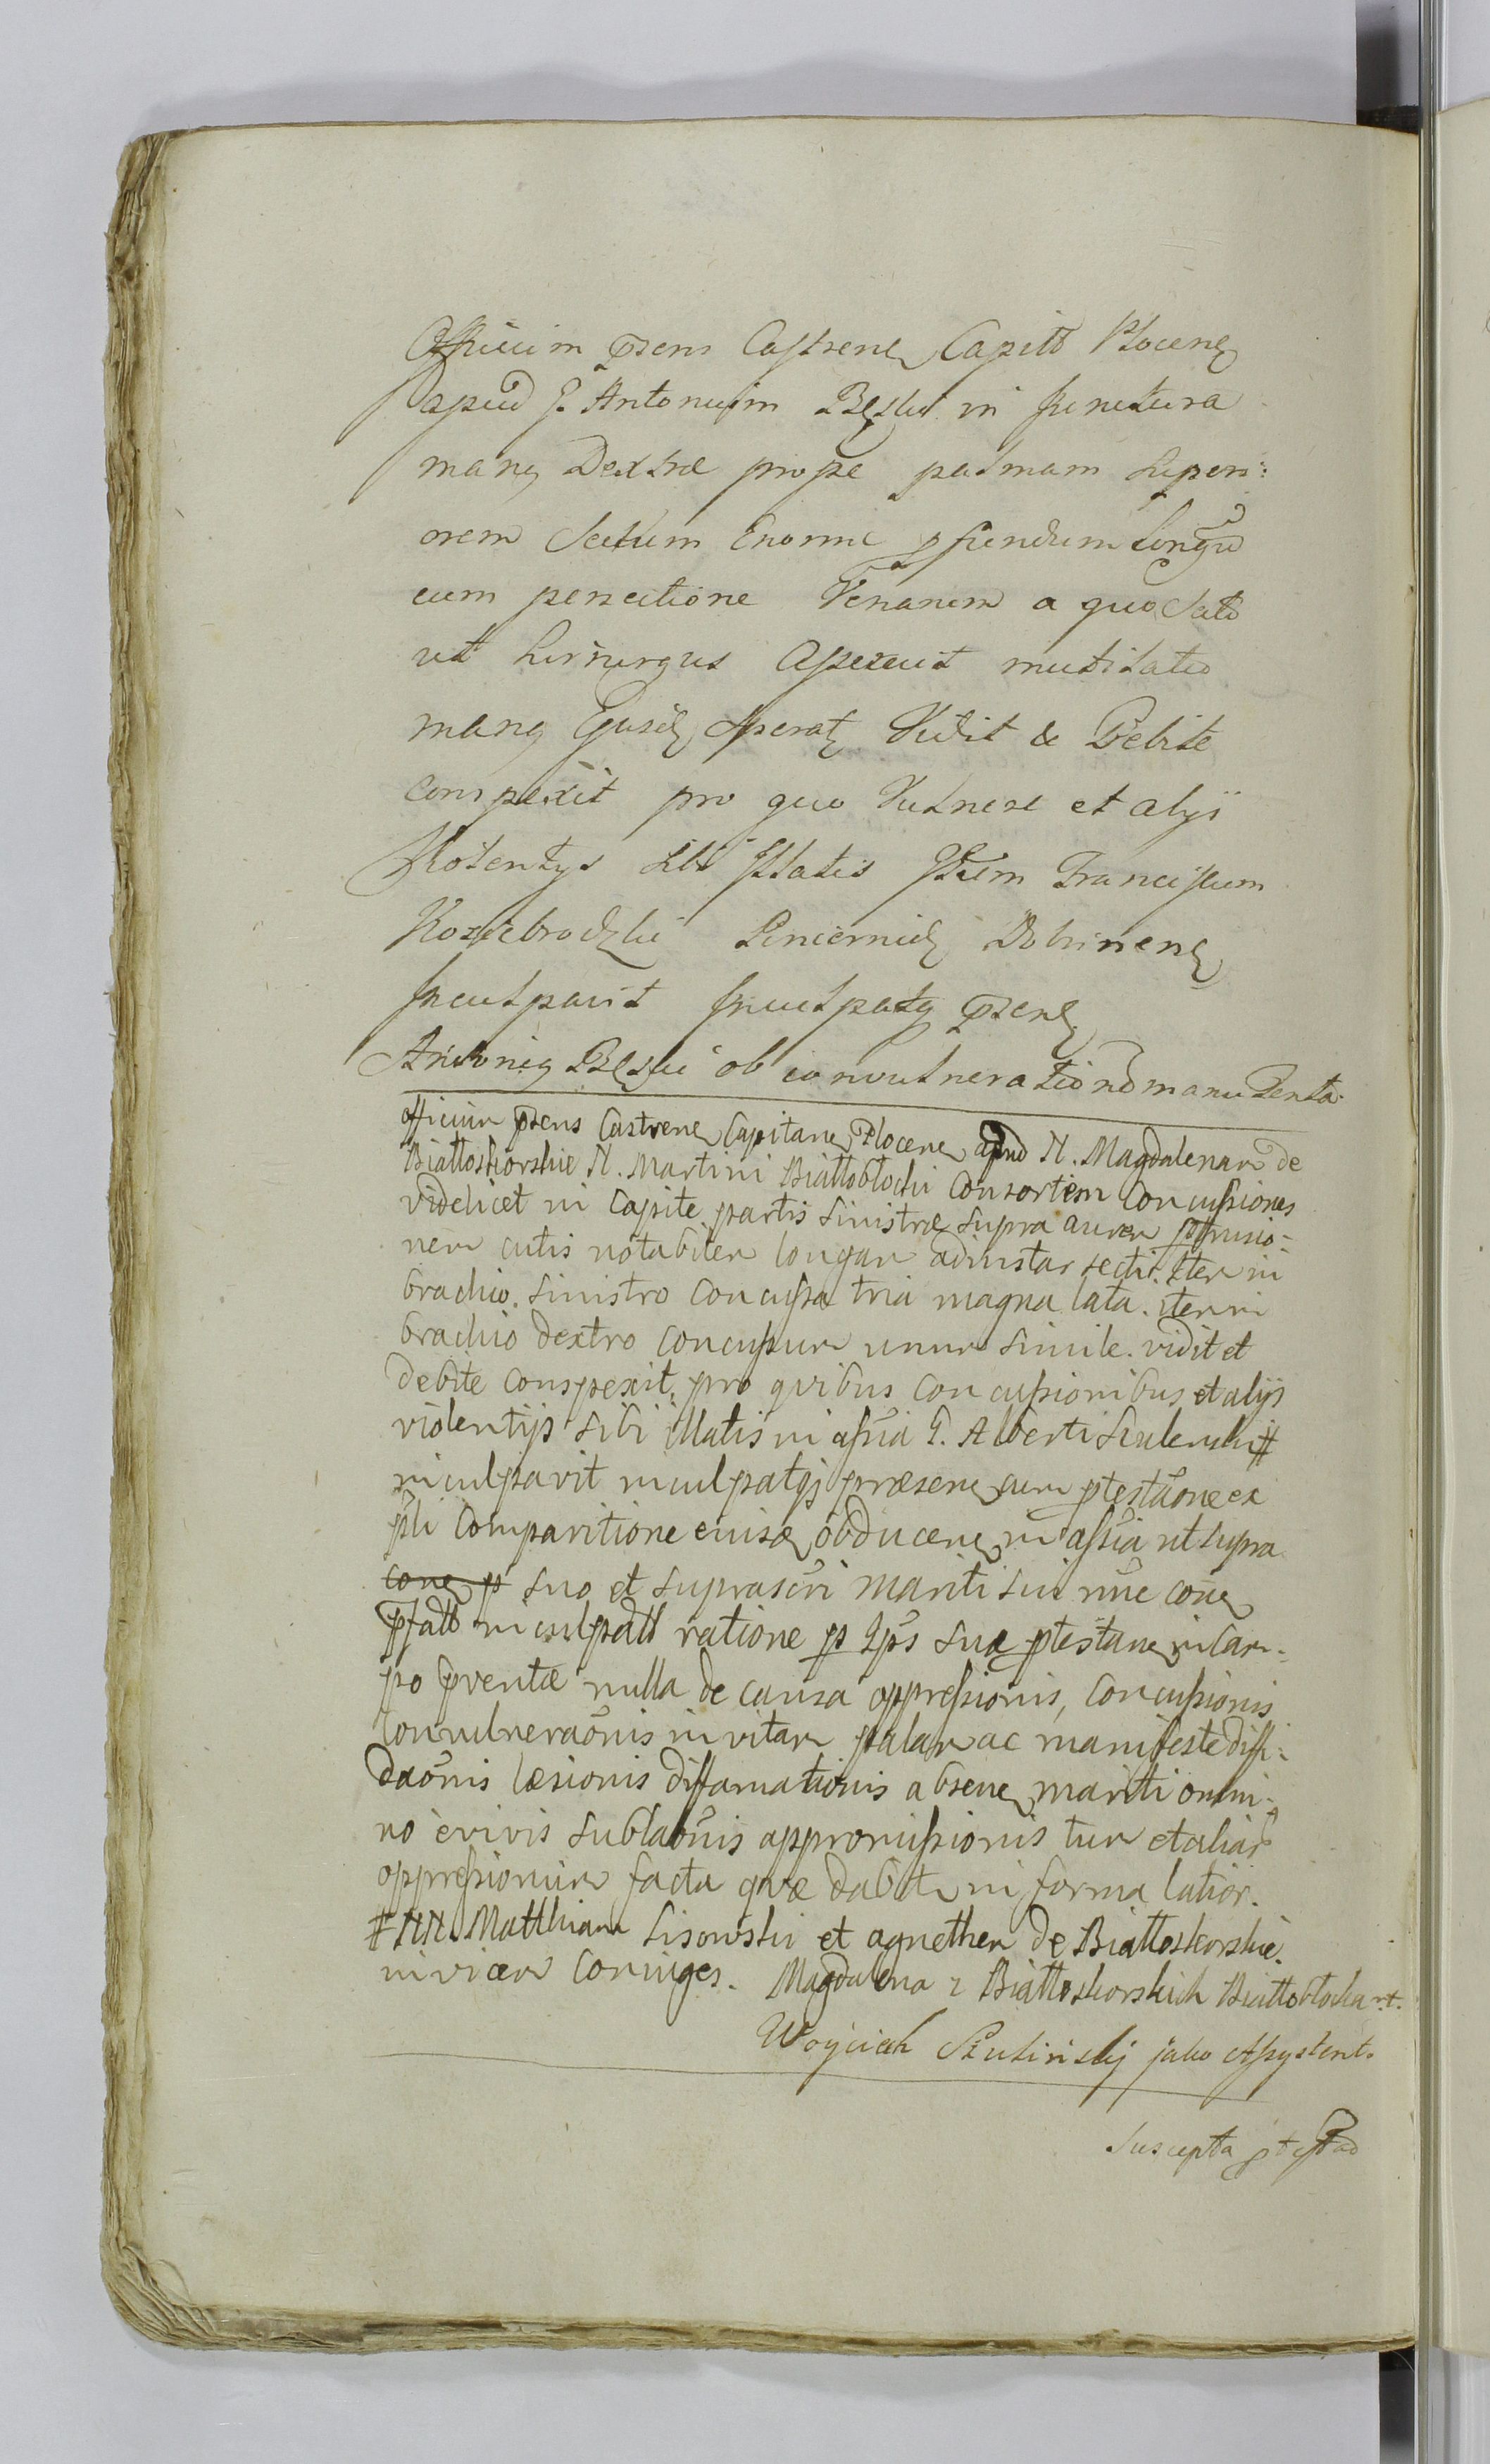 Officium pzens Castrene Capitt Plocene
apud G. Antonium Bęski in Junctura
manq Dextræ prope palmam Superi:
orem Sectum Enorme pfundum longu
cum persectione Venarum a quo Sato
ut Chirurgus Asseruit mutilatio
manq Ejusd Speratę Vidit & Debite
conspexit pro quo Vulnere et alijs
Violentijs sibi Illatis Gtum Franciscum
Kosiebrodzki Pincernid Dobrinen
Inculpavit Inculpatq pzen
Antoniq Bęski ob convulnerationẽ manu tenta.
officium pzens Castrene Capitane Plocene apud N. Magdalenam de
Białłoskorskie N. Martini Białłobłocki Consortem Concussiones
videlicet in Capite partis sinistræ supra aurem
nem cutis notabiter longam adinstar secti. Item in
brachio sinistro concussa tria magna lata. item in
brachio dextro concussum unum simile. vidit et
debite conspexit, pro quibus concussionibus et alijs
violentijs sibi illatis in assia G. Alberti #
inculpavit inculpatqj præsene cum ptestãone ex
pli Comparitione eiusd obducene in assia ut supra
cone p suo et suprascri mariti sui nõe cone
pfatt inculpatt ratione p Ips suæ ptestane in Cam:
po pventæ nulla de causa oppressionis, Concussionis
Convulneraõnis in vitam palam ac manifeste diffi:
daõnis læsionis diffamationis absene mariti omni:
nò è vivis sublaõnis appromissionis tum et aliar
oppressionum facta quæ dabitr in forma latiõr.
# NN. Matthiam Lisowski et agnethem de Białłoskorskie
invicem Coniuges. Magdalena z Białłoskorskich Białłobłocka
Woyciech Szulinskij jako Assystent.
Suscepta ptestao